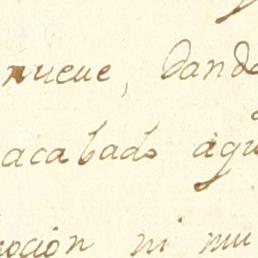 nueve, Dando
acabado agu
moción ni mu